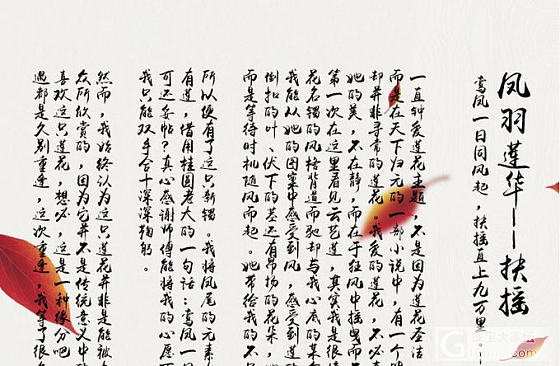 凤羽莲华——扶摇
鸾凤一日同风起，扶摇直上九万里
一直钟爱莲花主题，不是因为莲花圣洁
而是在天下归元的一部小说中，有一个
却并非寻常的莲花，我爱的莲花，不必
她的美，不在静，而在于狂风中摇曳而
第一次在这里看见云艺道，真实我是很
花名镯的风格背道而驰却与我心底的某
我能从她的图案中感受到风，感受到莲
倒扣的叶、伏下的茎还有昂扬的花朵，
而是等待时机随风而起。她带给我的不
所以便有了这只新镯。我将凤尾的元素
有道，借用桂圆老大的一句话：鸾凤一
可还妥帖？真心感谢师傅能将我的心愿
我只能双手合十深深鞠躬。
然而，我始终认为这只莲花并非是能被
众所欣赏的，因为它并不是传统意义中
喜欢这只莲花，想必，这是一种缘分吧
遇都是久别重逢，这次重逢，我等了很